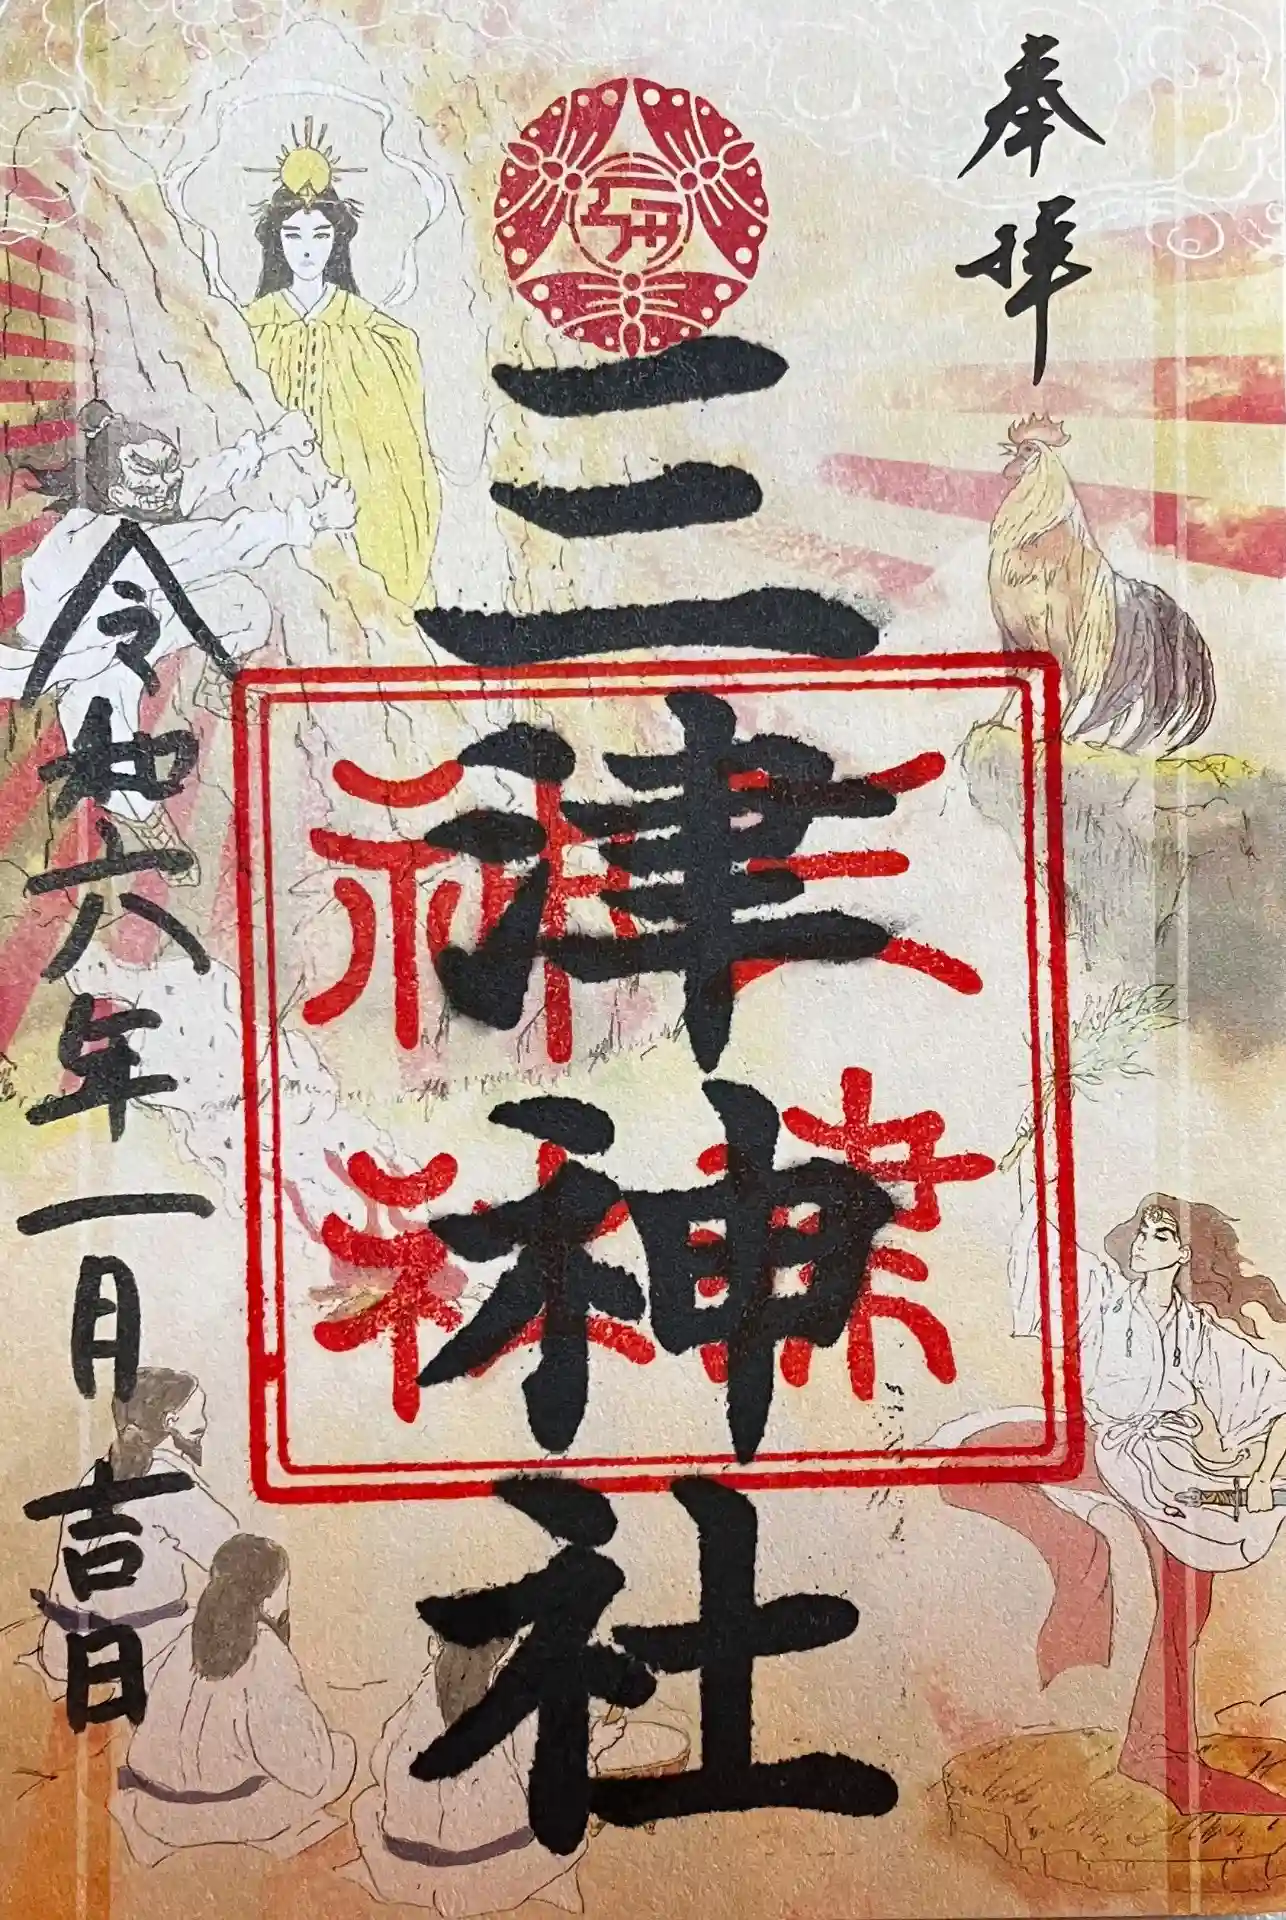 奉拝
三津神社
三
神社
令和六年一月吉日